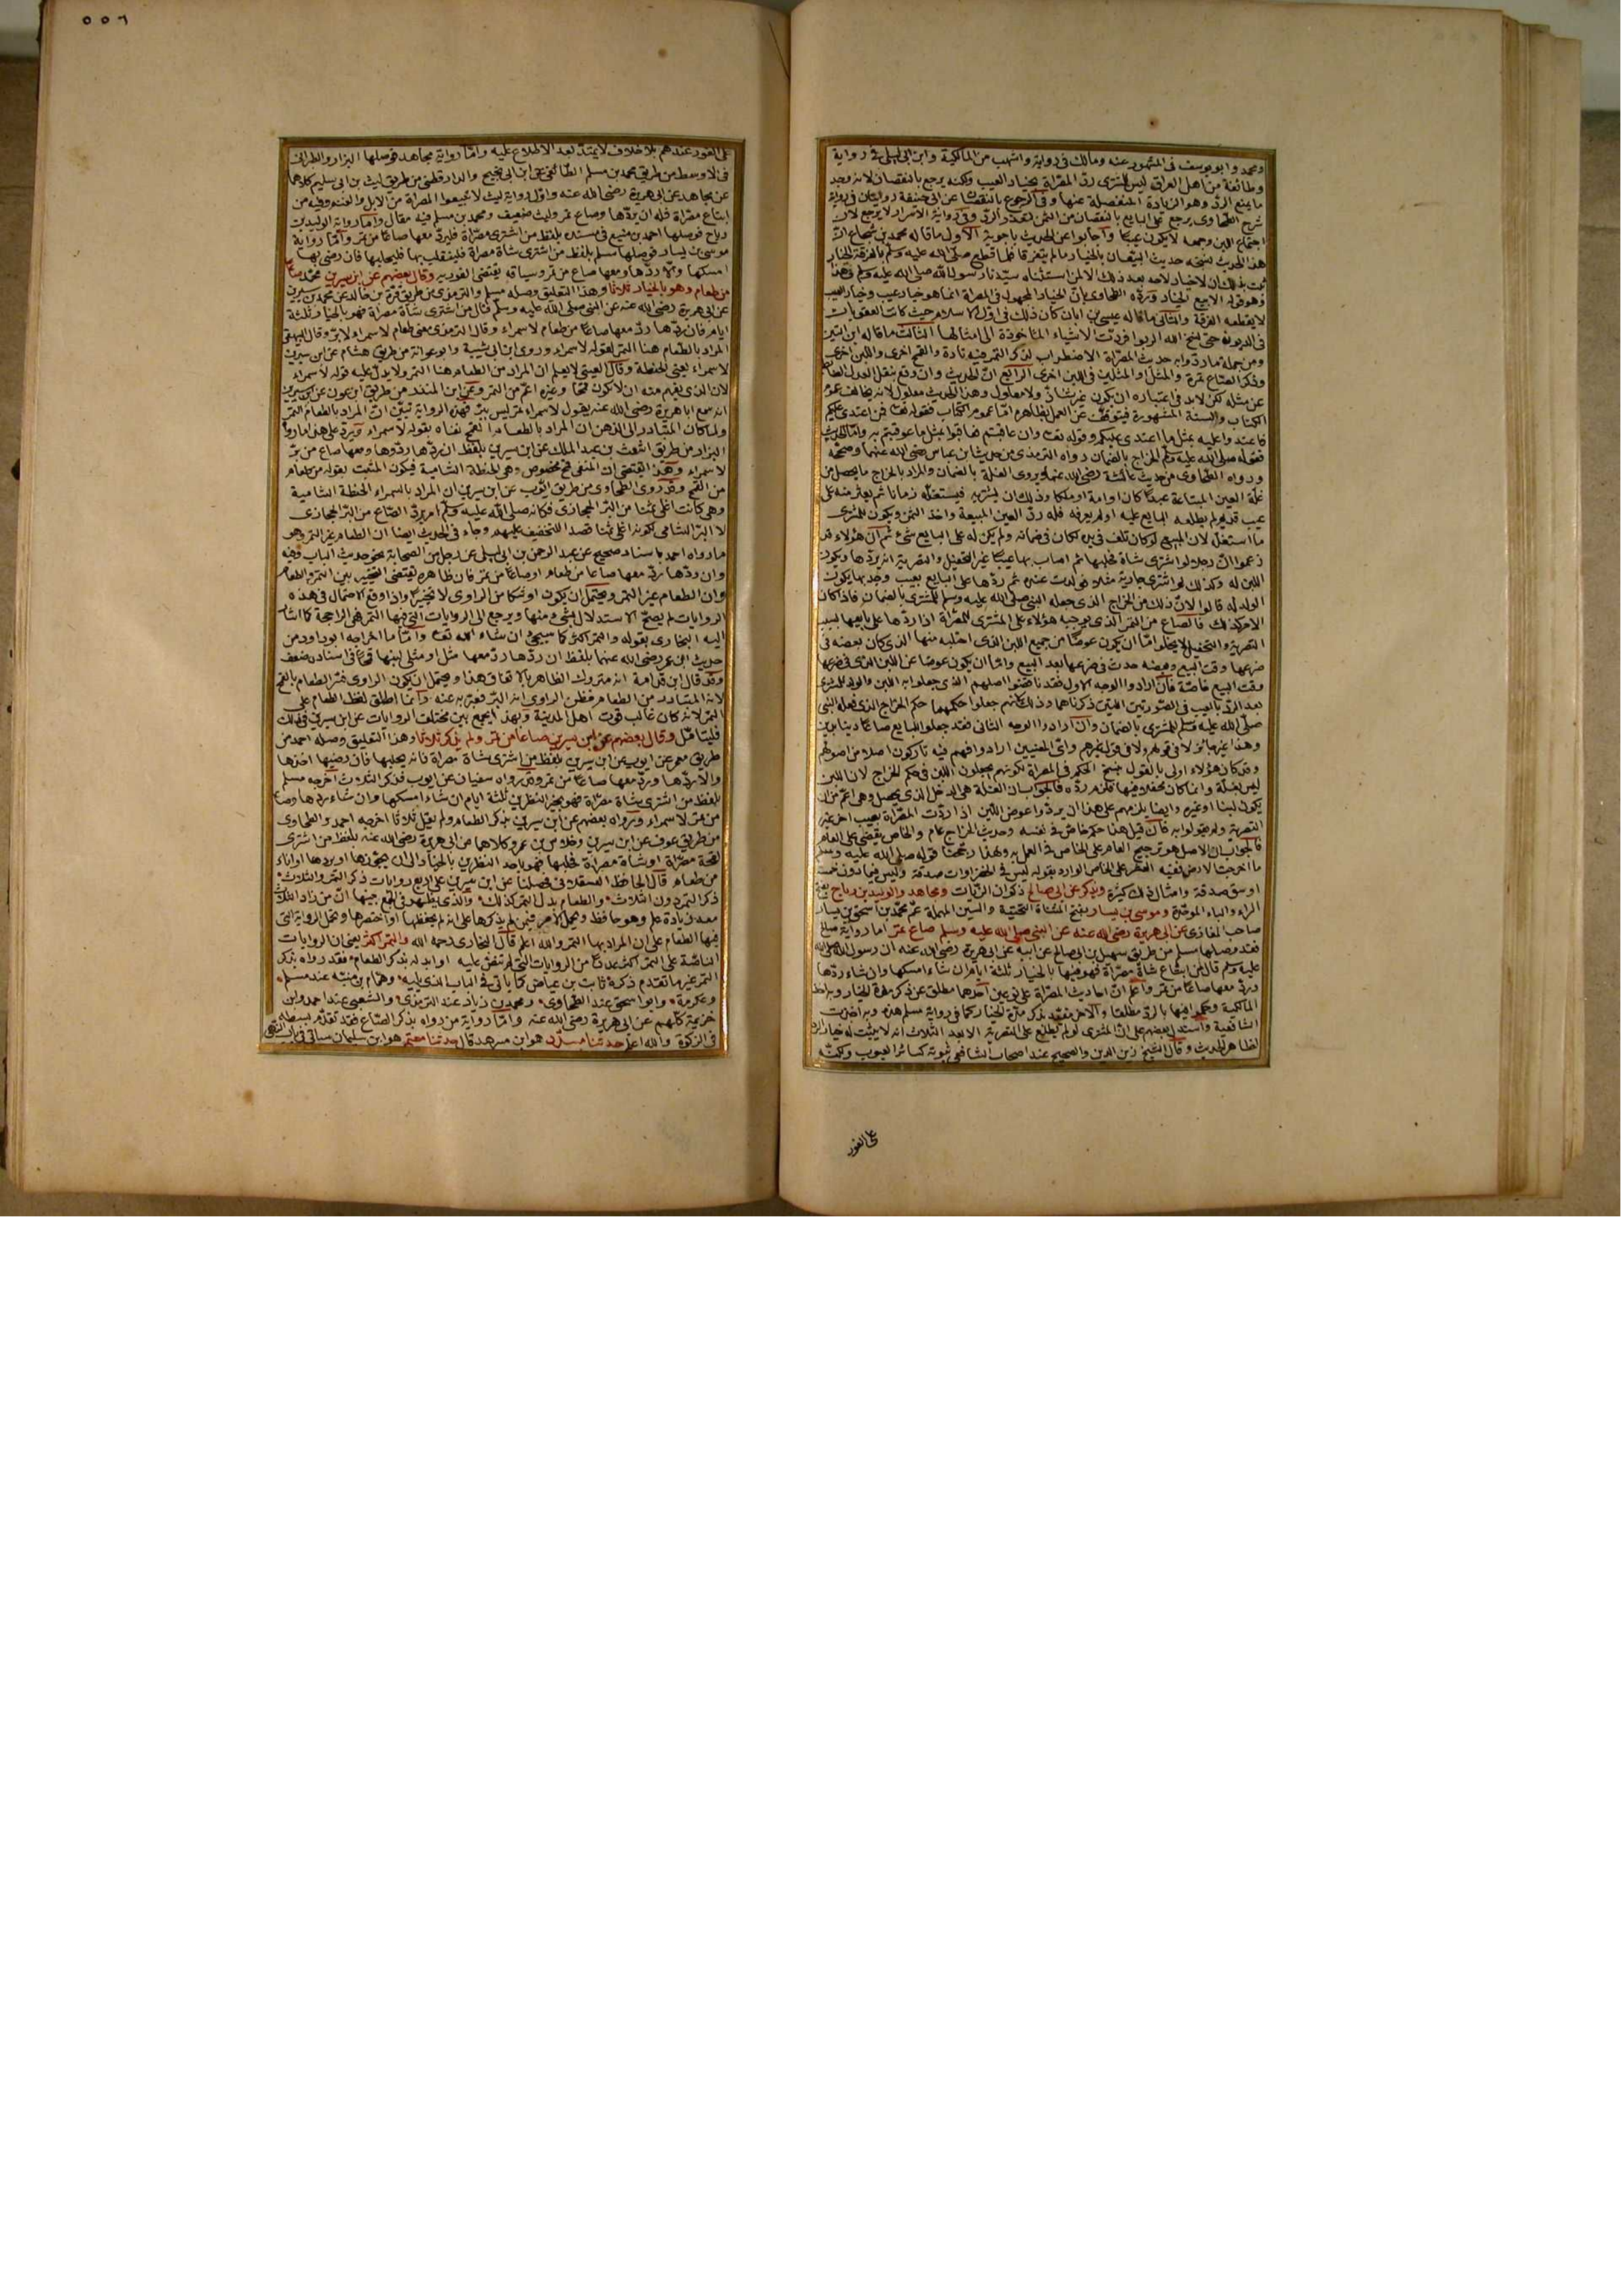 ومحمد وابو يوسف فى المشهور عنه ومالك فى رواية واشهب من المالكية وابن ابى ليلى فى رواية
وطائفة من اهل العراق ليس للمشترى ردّ المصرّاة بخيار العيب ولكنه يرجع بالنقصان لانه وجد
ما يمنع الردّ وهو الزيادة المنفصلة عنها وفى الرجوع بالنقصان عن ابى حنيفة روايتان فى رواية
شرح الطحاوى يرجع على البايع بالنقصان من الثمن لتعذر الردّ وفى رواية الاسرار لا يرجع لان
اجتماع اللبن وجمعه لا يكون عيبًا وأجابوا عن الحديث باجوبة الأول ما قاله محمد بن شجاع انّ
هذا الحديث نسخه حديث البيّعان بالخيار ما لم يتفرقا فلما قطع صلى الله عليه وسلم بالفرقة الخيار
ثبت بذلك ان لا خيار لاحد بعد ذلك الا لمن استثناه سيّدنا رسول الله صلى الله عليه وسلم فى هذا
وهو قوله الا بيع الخيار وردّه الطحاوى بانّ الخيار المجهول فى المصراة انما هو خيار عيب وخيار العيب
لا يقطعه الفرقة والثانى ما قاله عيسى بن ابان كان ذلك فى اوّل الاسلام حيث كانت العقوبات
فى الديون حتى نسخ الله الربوا فردّت الاشياء المأخوذة الى امثالها الثالث ما قاله ابن التين
ومن جملة ما ردّوا به حديث المصرّاة الاضطراب لذكر التمر فيه تارة والقمح اخرى واللبن اخرى
وذكر الصاع مرة والمثل او المثلين فى اللبن اخرى الرابع انّ الحديث وان وقع بنقل العدل الضابط
عن مثله لكن لابد فى اعتباره ان يكون غير شاذّ ولا معلول وهذا الحديث معلول لانه يخالف عموم
الكتاب والسنة المشهورة فيتوقف عن العمل بظاهره امّا عموم الكتاب فقوله تعا فمن اعتدى عليكم
فاعتدوا عليه بمثل ما اعتدى عليكم وقوله تعا وان عاقبتم فعاقبوا بمثل ما عوقبتم به وامّا الحديث
فقوله صلى الله عليه وسلم الخراج بالضمان رواه الترمذى من حديث ابن عباس رضى الله عنهما وصحّحه
ورواه الطحاوى من حديث عائشة رضى الله عنها ويروى الغلّة بالضمان والمراد بالخراج ما يحصل من
غلّة العين المبتاعة عبدًا كان او امة او ملكا وذلك ان يشتريه فيستغلّه زمانا ثم يعثر منه على
عيب قديم لم يطلعه البايع عليه او لم يعرفه فله ردّ العين المبيعة واخذ الثمن ويكون للمشترى
ما استغلّ لان المبيع لو كان تلف فى يده لكان فى ضمانه ولم يكن له على البايع شئ ثم ان هؤلاء قد
زعموا انّ رجلا لو اشترى شاة فحلبها ثم اصاب بها عيبًا غير التحفيل والتصرية انه يردّها ويكون
اللبن له وكذلك لو اشترى جارية مثلا فولدت عنده ثم ردّها على البايع بعيب وجد بها يكون
الولد له قالوا لانّ ذلك من الخراج الذى جعله النبى صلى الله عليه وسلم للمشترى بالضمان فاذا كان
الامر كذلك فالصاع من التمر الذى يوجبه هؤلاء على المشترى للمصّراة اذا ردّها على بايعها بسبب
التصرية والتحفيل لا يخلو امّا ان يكون عوضًا من جميع اللبن الذى احتلبه منها الذى كان بعضه فى
ضرعها وقت البيع وبعضه حدث فى ضرعها بعد البيع وامّا ان يكون عوضًا عن اللبن الذى فى ضرعها
وقت البيع خاصّة فان ارادوا الوجه الاول فقد ناقضوا اصلهم الذى جعلوا به اللبن والولد للمشترى
بعد الردّ بالعيب فى الصّورتين اللتين ذكرناهما وذلك لانهم جعلوا حكمهما حكم الخراج الذى فعله النبى
صلّى الله عليه وسلم للمشترى بالضمان وان ارادوا الوجه الثانى فقد جعلوا للبايع صاعًا دينا بدين
وهذا غير جائز لا فى قولهم ولا فى قول غيرهم واىّ المعنيين ارادوا فهم فيه تاركون اصلا من اصولهم
وقد كان هؤلاء اولى بالقول بنسخ الحكم فى المصراة لكونهم يجعلون اللبن فى حكم الخراج لان اللبن
ليس بغلّة وانما كان محفلا فيها فلزم ردّه فالجواب ان الغلّة هى الدخل الذى يحصل وهى اعمّ من ان
يكون لبنا او غيره وايضا يلزمهم على هذا ان يردّوا عوض اللبن اذا ردّت المصرّاة بعيب اخر غير
التصرية ولم يقولوا به فان قيل هذا حكم خاصّ فى نفسه وحديث الخراج عام والخاص يقضى على العام
فالجواب ان الاصل هو ترجيح العام على الخاص فى العمل به ولهذا رجحنا قوله صلى الله عليه وسلم
ما اخرجت الارض ففيه العشر على الخاص الوارد بقوله ليس فى الخضراوات صدقة وليس فيما دون خمسة
اوسق صدقة وامثال ذلك كثيرة ويذكر عن ابى صالح ذكوان الزيّات ومجاهد والوليد بن رباح بفتح
الراء والباء الموحّدة وموسى بن يسار بفتح المثناة التحتية والسين المهملة عمّ محمّد بن اسحق بن يسار
صاحب المغازى عن ابى هريرة رضى الله عنه عن النبى صلى الله عليه وسلم صاع تمر اما رواية صالح
فقد وصلها مسلم من طريق سهيل بن ابى صالح عن ابيه عن ابى هريرة رضى الله عنه ان رسول الله صلى الله
عليه وسلم قال من ابتاع شاة مصرّاة فهو فيها بالخيار ثلثة ايّام ان شاء امسكها وان شاء ردّها
وردّ معها صاعًا من تمر واعلم انّ احاديث المصرّاة على نوعين احدهما مطلق عن ذكر مدّة الخيار وبه اخذ
المالكية وحكموا فيها بالردّ مطلقا والآخر مقيّد بذكر مدّة الخيار كما فى رواية مسلم هذه وبه اخذت
الشافعية واستدلّ بعضهم على انّ المشترى لو لم يطلع على التصرية الا بعد الثلاث انه لا يثبت له خيار الردّ
لظاهر الحديث وقال الشيخ زين الدين والصحيح عند اصحاب الشافعى ثبوته كسائر العيوب ولكنّه
على الفور
٥٥٦
على الفور عندهم بلا خلاف لا يمتدّ بعد الاطلاع عليه وامّا رواية مجاهد فوصلها البزار والطبرانى
فى الاوسط من طريق محمد بن مسلم الطائفى عن ابن ابى نجيح والدارقطنى من طريق ليث بن ابى سليم كلاهما
عن مجاهد عن ابى هريرة رضى الله عنه واوّل رواية ليث لا تبيعوا المصراة من الابل والغنم وفيه من
ابتاع مصرّاة فله ان يردّها وصاع تمر وليث ضعيف ومحمد بن مسلم فيه مقال وامّا رواية الوليد بن
رباح فوصلها احمد بن منيع فى مسنده بلفظ من اشترى مصرّاة فليردّ معها صاعًا من تمر وامّا رواية
موسى بن يسار فوصلها مسلم بلفظ من اشترى شاة مصراة فلينقلب بها فليحلبها فان رضى بها
امسكها والا ردّها ومعها صاع من تمر وسياقه يقتضى الفورية وقال بعضهم عن ابن سيرين محمّد صاعًا
من طعام وهو بالخيار ثلاثًا وهذا التعليق وصله مسلم والترمذى من طريق قرّة بن خالد عن محمد بن سيرين
عن ابى هريرة رضى الله عنه عن النبى صلى الله عليه وسلّم قال من اشترى شاة مصراة فهو بالخيار ثلثة
ايام فان ردّها ردّ معها صاعًا من طعام لا سمراء وقال الترمذى معنى طعام لا سمراء لا برّ وقال البيهقى
المراد بالطعام هنا التمر لقوله لا سمراء وروى ابن ابى شيبة وابو عوانة من طريق هشام عن ابن سيرين
لا سمراء يعنى الحنطة وقال العينى لا يعلم ان المراد من الطعام هنا التمر ولا يدلّ عليه قوله لا سمراء
لان الذى يفهم منه ان لا يكون قمحًا وغيره اعمّ من التمر وعن ابن المنذر من طريق ابن عون عن ابن سيرين
انه سمع ابا هريرة رضى الله عنه يقول لا سمراء تمر ليس ببرّ فهذه الرواية تبيّن انّ المراد بالطعام التمر
ولما كان المتبادر الى الذهن ان المراد بالطعام القمح نفاه بقوله لا سمراء ويردّ على هذا ما رواه
البزار من طريق اشعث بن عبد الملك عن ابن سيرين بلفظ ان ردّها ردّها ومعها صاع من برّ
لا سمراء وهذا يقتضى ان المنفى قمح مخصوص وهى الحنطة الشامية فيكون المثبت لقوله من طعام
من القمح وقد روى الطحاوى من طريق ايّوب عن ابن سيرين ان المراد بالسمراء الحنطة الشامية
وهى كانت اغلى ثمنًا من البرّ الحجازى فكانه صلى الله عليه وسلّم امر بردّ الصّاع من البرّ الحجازى
لا البرّ الشامى لكونه اغلى ثمنا قصدا للتخفيف عليهم وجاء فى الحديث ايضا ان الطعام غير التمر وهو
ما رواه احمد باسناد صحيح عن عبد الرحمن بن ابى ليلى عن رجل من الصحابة نحو حديث الباب وفيه
وان ردّها ردّ معها صاعًا من طعام او صاعًا من تمر فان ظاهره يقتضى التخيير بين التمر والطعام
وان الطعام غير التمر ويحتمل ان يكون او شكا من الراوى لا تخييرًا واذا وقع الاحتمال فى هذه
الروايات لم يصحّ الاستدلال بشئ منها ويرجع الى الروايات التى فيها التمر هى الراجحة كما اشار
اليه البخارى بقوله والتمر اكثر كما سيجئ ان شاء الله تعا وامّا ما اخرجه ابو داود من
حديث ابن عمر رضى الله عنهما بلفظ ان ردّها ردّ معها مثل او مثلى لبنها قمحًا فى اسناده ضعف
وقد قال ابن قدامة انه متروك الظاهر بالاتفاق هذا ويحتمل ان يكون الراوى فسّر الطعام بالقمح
لانه المتبادر من الطعام فظن الراوى انه البرّ فعبّر به عنه وانما اطلق لفظ الطعام على
التمر لانه كان غالب قوت اهل المدينة وبهذا يجمع بين مختلف الروايات عن ابن سيرين فى ذلك
فليتأمّل وقال بعضهم عن ابن سيرين صاعًا من تمر ولم يذكر ثلاثًا وهذا التعليق وصله احمد من
طريق معمر عن ايوب عن ابن سيرين بلفظ من اشترى شاة مصراة فانه يحلبها فان رضيها اخذها
والا ردّها وردّ معها صاعًا من تمر وقد رواه سفيان عن ايوب فذكر الثلاث اخرجه مسلم
بلفظ من اشترى شاة مصرّاة فهو بخير النظرين ثلثة ايام ان شاء امسكها وان شاء ردها وصاعًا
من تمر لا سمراء ورواه بعضهم عن ابن سيرين بذكر الطعام ولم يقل ثلاثًا اخرجه احمد والطحاوى
من طريق عوف عن ابن سيرين وخلاس بن عمرو كلاهما عن ابى هريرة رضى الله عنه بلفظ من اشترى
لقحة مصرّاة او شاة مصرّاة فحلبها فهو باحد النظرين بالخيار الى ان يحوزها او يردها واناء
من طعام قال الحافظ العسقلانى فحصلنا عن ابن سيرين على اربع روايات ذكر التمر والثلاث
ذكر التمر دون الثلاث والطعام بدل التمر كذلك والذى يظهر فى الجمع بينها انّ من زاد الثلاث
معه زيادة علم وهو حافظ ويحمل الامر فيمن لم يذكرها على انه لم يحفظها او اختصرها وتحمل الرواية التى
فيها الطعام على ان المراد بها التمر والله اعلم قال البخارى رحمه الله والتمر اكثر يعنى ان الروايات
الناصّة على التمر اكثر عددًا من الروايات التى لم تنصّ عليه او ابدله بذكر الطعام فقد رواه بذكر
التمر غير ما تقدم ذكره ثابت بن عياض كما يأتى فى الباب الذى يليه وهمّام بن منبّه عند مسلم
وعكرمة وابو اسحق عند الطحاوى ومحمد بن زياد عند الترمذى والشعبى عند احمد وابن
خزيمة كلّهم عن ابى هريرة رضى الله عنه وامّا رواية من رواه بذكر الصّاع فقد تقدّم بسطه
فى الزكوة والله اعلم حدثنا مسدّد هو ابن مسرهد قال حدثنا معتمر هو ابن سليمان